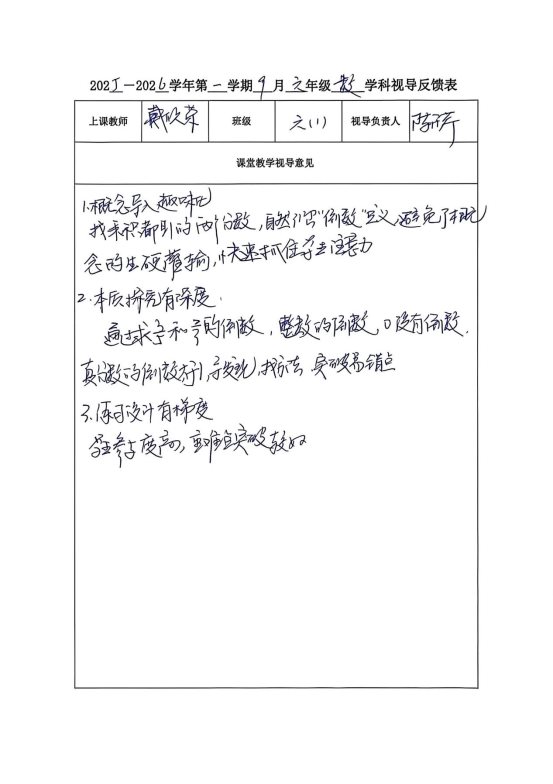 2025—2026学年第一学期9月六年级数学科视导反馈表
上课教师 戴欣荣 班级 六(1) 视导负责人 陈
课堂教学视导意见
1.概念导入趣味化
找乘积都是1的两个分数,自然引出“倒数”定义,避免了概
念的生硬灌输,快速抓住学生注意力
2.本质探究有深度.
通过求 和 的倒数,整数的倒数,0没有倒数.
真分数的倒数 ,找方法 突破易错点
3.练习设计有梯度
学生参与度高,重难点突破较好